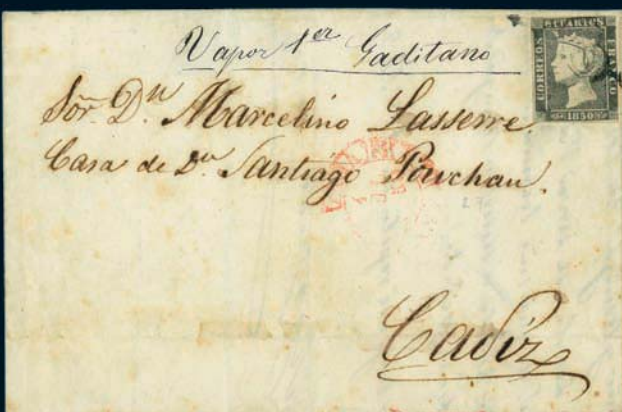 Vapor 1er Gaditano
6 CUARTOS
CORREOS
1850
Sor. Dn. Marcelino Lasserre.
Casa de Dn. Santiago
Cadiz